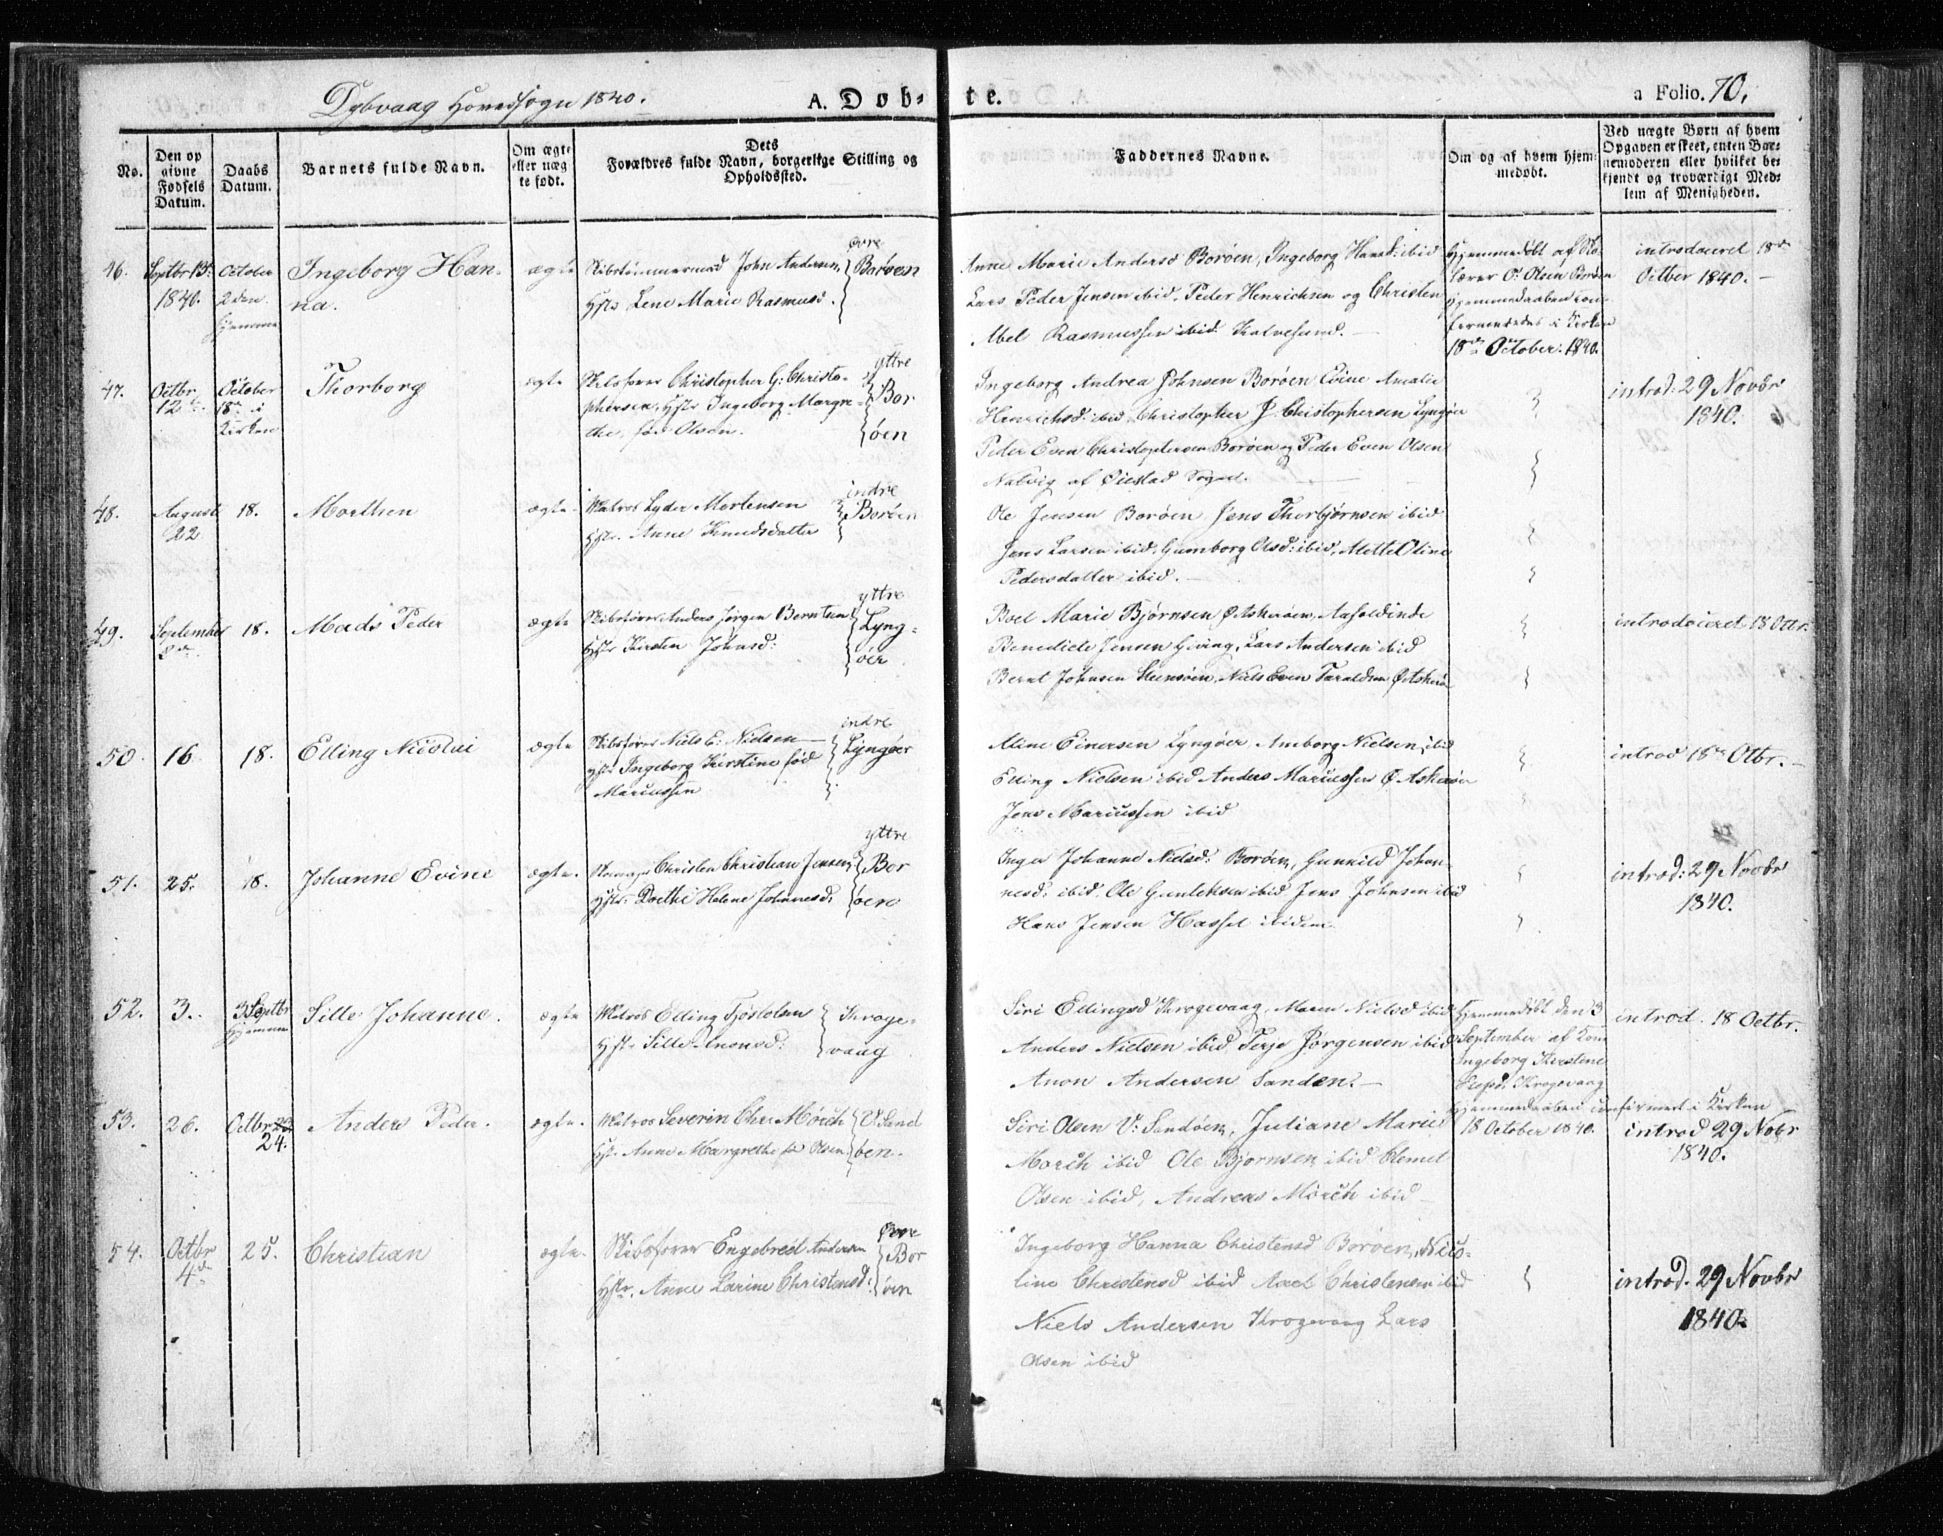 Dybvaag Hovedsogn 1840.
A. Døb-te.
a Folio. 70,
No.
Den op
givne
Fødsels
Datum.
Daabs
Datum.
Barnets fulde Navn.
Om ægte
eller uæg
te født.
Dets
Forældres fulde Navn, borgerlige Stilling og
Opholdssted.
Faddernes Navne.
Om og af hvem hjem-
medøbt.
Ved uægte Børn af hvem
Opgaven er skeet, enten Bar-
nemoderen eller hvilket be-
kjendt og troværdigt Med-
lem af Menigheden.
46. Septbr 15. 1840. October 2den hjemme
Ingeborg Han-
na.
ægte
Skibstømmermd John Andersen,
Hstr Lene Marie Rasmusd.
øvre
Borøen
Anne Marie Andersd Borøen, Ingeborg Hansd: ibid
Lars Peder Jensen ibid. Peder Henrichsen og Christen
Abel Rasmussen ibid Kalvesund.
Hjemmedøbt af Sko-
lærer O: Olsen Borøen
Hjemmedaaben con-
fermeredes i Kirken
18de October: 1840.
introduceret 18de
Octber 1840.
47. Octbr 12te October 18de i Kirken
Thorborg
ægte
Skibsfører Christopher G: Christo-
phersen, Hstr Ingeborg Margre-
the, fød Olsen.
yttre
Bor
øen
Ingeborg Andrea Johnsen Borøen Evine Amalie
Henrichsd: ibid, Christopher J. Christophersen Lyngøer
Peder Even Christophersen Borøen og Peder Even Olsen
Natvig af Øiestad Sogn.
introd: 29 Novbr
1840.
48. August 22 18.
Morthen
ægte
Matros Lyder Mortensen
Hstr. Anne Knudsdatter
indre
Borøen
Ole Jensen Borøen, Jens Thorbjørnsen ibid
Jens Larsen ibid, Gumborg Olsd: ibid, Mette Oline
Pedersdatter ibid.
49. September 18.
Mads Peder
ægte
Skibsfører Anders Jørgen Berntsen
Hstr Kirsten Johnsd:
yttre
Lyng-
øer
Boel Marie Bjørnsen Ø. Askerøen,
Benedicte Jensen Gjeving, Lars Andersen ibid
Bernt Johnsen Steensøen, Niels Even Taraldsen, Ø Askerø
introduceret 18 Octbr.
50. 16 18.
Elling Nicolai
ægte
Skibsfører Niels E: Nielsen
Hstr Ingeborg Kirstine fød
Mariussen
indre
Lyngøer
Aline Einersen Lyngøer Amborg Nielsen, ibid
Elling Nielsen ibid Anders Mariussen Ø Askerøen
Jens Mariussen ibid
introd 18de Otbr.
51. 25. 18.
Johanne Evine
ægte.
Christen Christian Jensen,
Hstr. Dorthe Helene Johannesd:
yttre
Bor
øen
Inger Johanne Nielsd: Borøen, Gunnild Johan-
nesd: ibid. Ole Gunleksen ibid Jens Johnsen ibid
Hans Jensen Hassel ibidem.
introd: 29 Novbr
1840.
52. 3. 3 Septbr hjemme
Sille Johanne.
ægte
Matros Elling Tjøstolsen
Hstr Sille Anonsd:
Kroge-
vaag
Siri Ellingsd Krogevaag, Maren Nielsd ibid
Anders Nielsen ibid Terje Jørgensen ibid
Anon Andersen Sanden.
Hjemmedøbt den 3
September af Kone
Ingeborg Kirstene
Krogevaag
Hjemmedaaben confirmert i Kirken
18 October 1840.
introd. 18 Octbr.
53. 26. Octbr 24.
Anders Peder.
ægte.
Matros Severin Chr: Mørch
Hstr. Anne Margrethe fd Olsen
V. Sand
øen.
Siri Olsen V: Sandøen, Juliane Marie
Morch ibid Ole Bjørnsen ibid Clemet
Olsen ibid, Andreas Mörch ibid
introd 29 Nobr
1840.
54. Octbr 4de 25.
Christian
ægte.
Skibsfører Engebret Andersen
Hstr. Anne Larine Christensd:
øvre
Bor
øen
Ingeborg Hanna Christensd Borøen, Nico-
line Christensd ibid Axel Christensen ibid
Niels Andersen Krogevaag Lars
Olsen ibid
introd. 29 Novbr
1840.